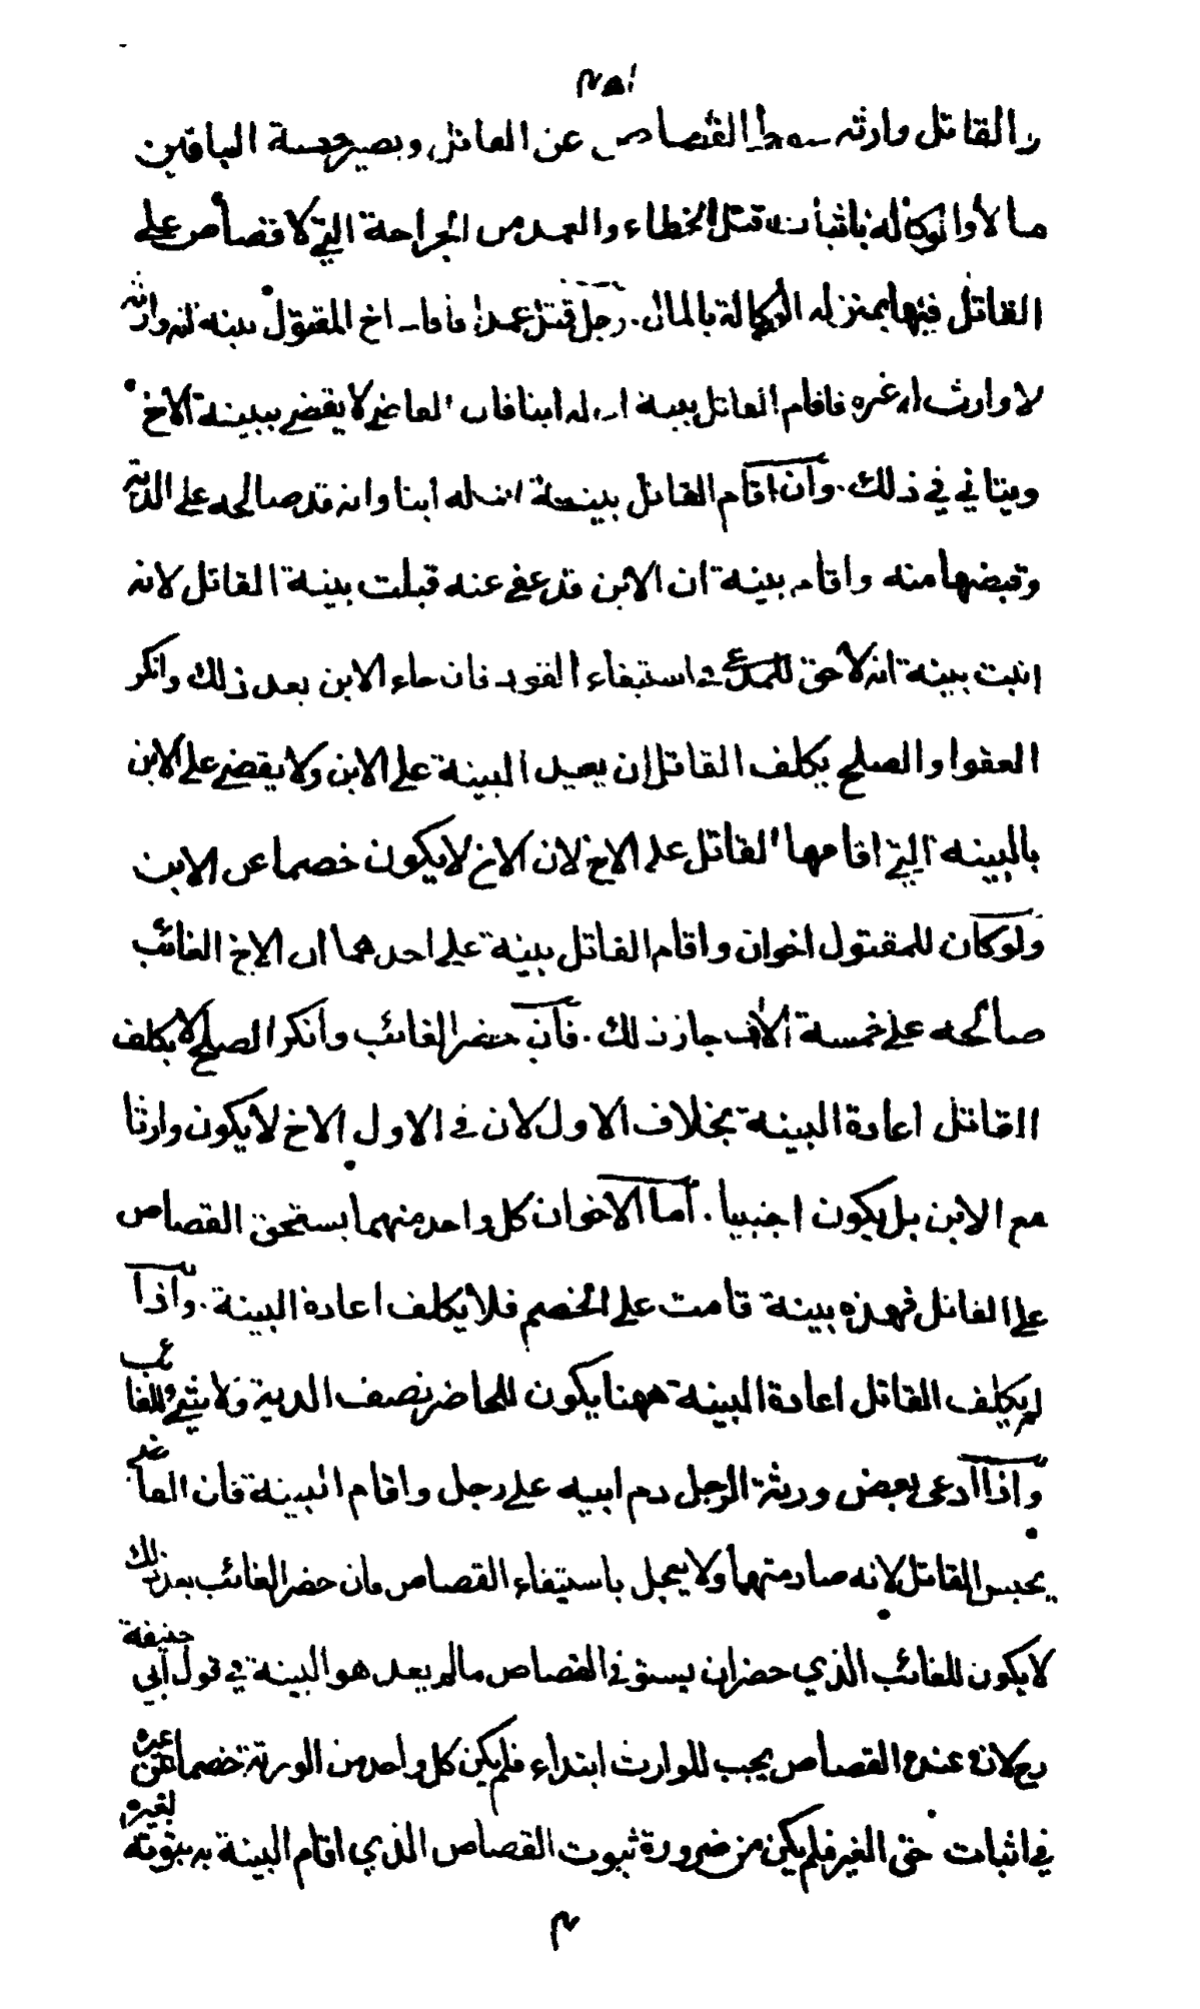 ٢٥١
والقاتل وارثه سقط القصاص عن القاتل ويصير حصة الباقين
مالا والوكالة باثبات قتل الخطاء والعمد من الجراحة التي لا قصاص على
القاتل فيها بمنزلة الوكالة بالمال. رجل قتل عمدا فاقام اخ المقتول بينة انه وارثه
لا وارث له غيره فاقام القاتل بينة ان له ابنا فان القاضي لا يقضي ببينة الاخ
ويتاني في ذلك. وان اقام القاتل بينة ان له ابنا وانه قد صالحه على الدية
وقبضها منه واقام بينة ان الابن قد عفى عنه قبلت بينة القاتل لانه
اثبت ببينة انه لا حق للمدعي في استيفاء القود فان جاء الابن بعد ذلك وانكر
العفو او الصلح يكلف القاتل ان يعيد البينة على الابن ولا يقضي على الابن
بالبينة التي اقامها القاتل على الاخ لان الاخ لا يكون خصما عن الابن
ولو كان للمقتول اخوان واقام القاتل بينة على احدهما ان الاخ الغائب
صالحه على خمسة الاف جاز ذلك. فان حضر الغائب وانكر الصلح لا يكلف
القاتل اعادة البينة بخلاف الاول لان في الاول الاخ لا يكون وارثا
مع الابن بل يكون اجنبيا. اما الاخوان كل واحد منهما يستحق القصاص
على القاتل فهذه بينة قامت على الخصم فلا يكلف اعادة البينة. واذا
لم يكلف القاتل اعادة البينة ههنا يكون للحاضر نصف الدية ولا شيء للغائب
واذا ادعى بعض ورثة الرجل دم ابيه على رجل واقام البينة فان القاضي
يحبس القاتل لانه صار متهما ولا يعجل باستيفاء القصاص فان حضر الغائب بعد ذلك
لا يكون للغائب الذي حضر ان يستوفي القصاص ما لم يعد هو البينة في قول ابي حنيفة
رح لانه عنده القصاص يجب للوارث ابتداء فلم يكن كل واحد من الورثة خصما عن غيره
في اثبات حق الغير فلم يكن من ضرورة ثبوت القصاص الذي اقام البينة به ثبوته لغيره